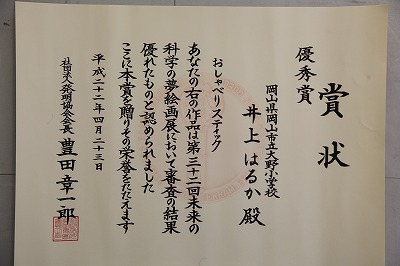 賞状
優秀賞
岡山県岡山市立大野小学校
井上はるか殿
おしゃべりスティック
あなたの右の作品は第三十二回未来の
科学の夢絵画展において審査の結果
優れたものと認められました
ここに本賞を贈りその栄誉をたたえます
平成二十二年四月二十三日
社団法人発明協会会長 豊田章一郎